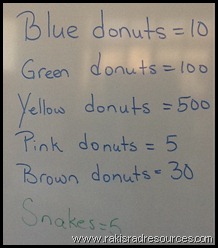 Blue donuts = 10
Green donuts = 100
Yellow donuts = 500
Pink donuts = 5
Brown donuts = 30
Snakes = 5
www.rakisradresources.com